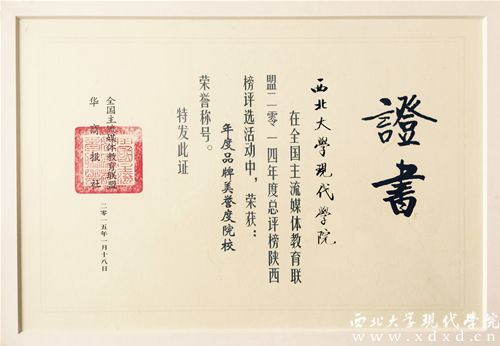 證書
西北大学现代学院
在全国主流媒体教育联
盟二零一四年度总评榜陕西
榜评选活动中，荣获：
年度品牌美誉度院校
荣誉称号。
特发此证
全国主流媒体教育联盟
华商报社
二零一五年一月十八日
西北大学现代学院
www.xdxd.cn